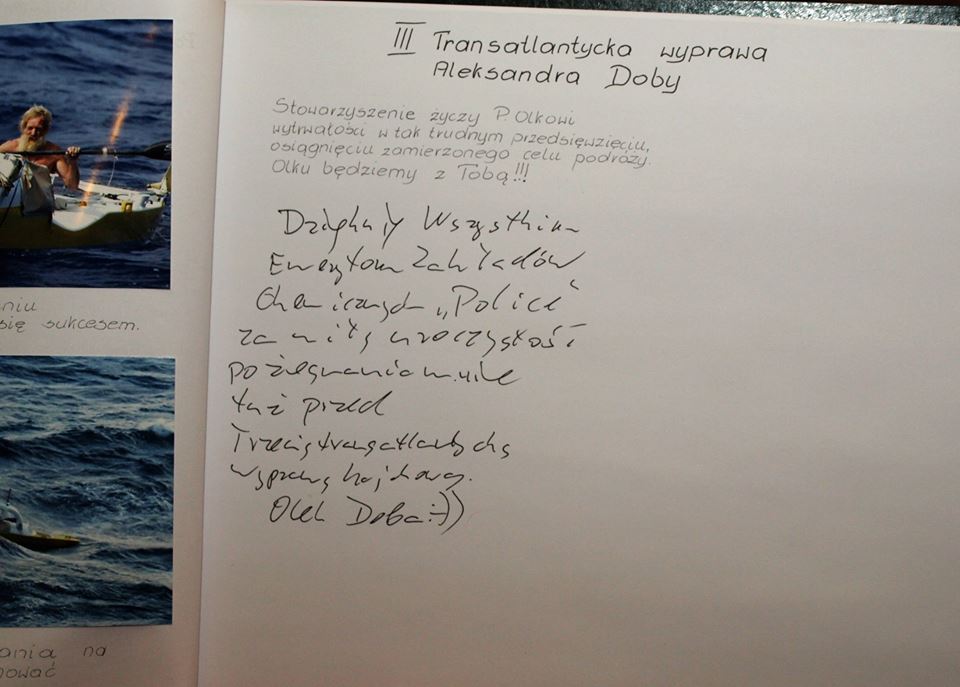 niu
się sukcesem.
ania na
nować
III Transatlantycka wyprawa
Aleksandra Doby
Stowarzyszenie życzy P. Olkowi
wytrwałości w tak trudnym przedsięwzięciu,
osiągnięciu zamierzonego celu podróży.
Olku będziemy z Tobą!!!
Dziękuję Wszystkim
Emerytom Zakładów
Chemicznych „Police"
za miłą uroczystość
pożegnania mnie
tuż przed
Trzecią transatlantycką
wyprawą kajakową.
Olek Doba:-))